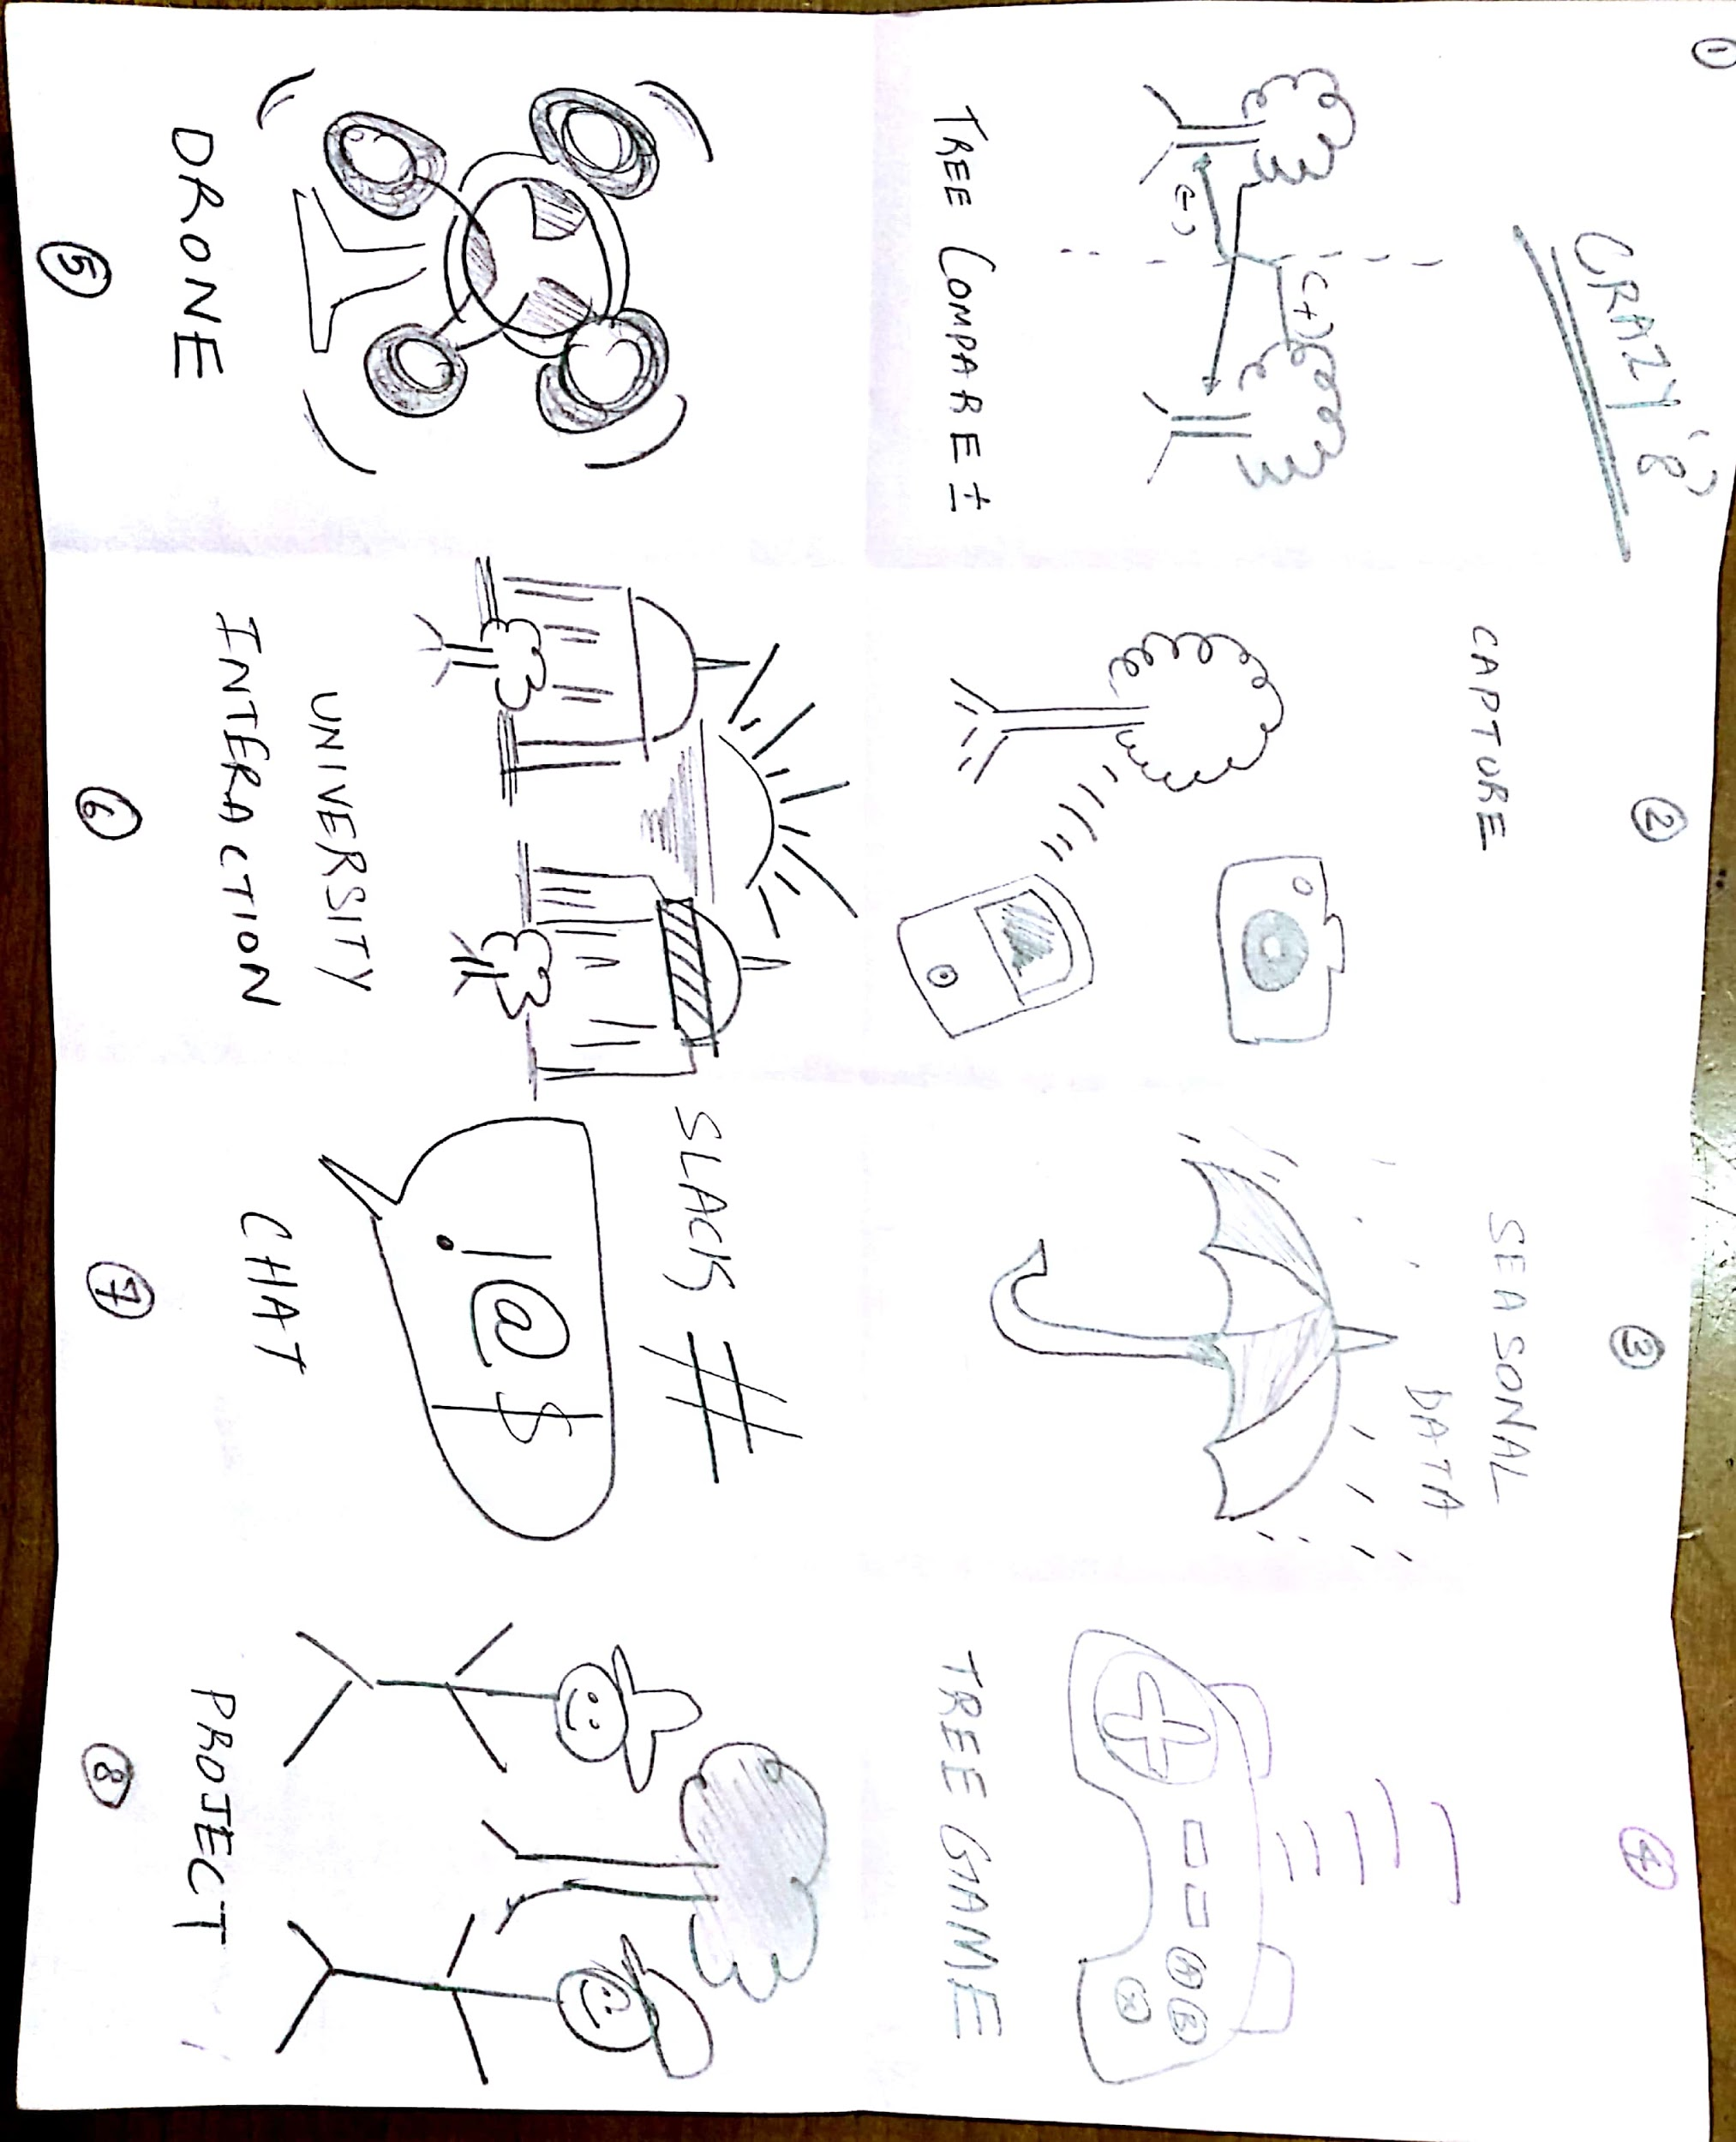 ①
CRAZY '8'
(-)
(+)
TREE COMPARE ±
②
CAPTURE
③
SEASONAL
DATA
④
A B
X
TREE GAME
DRONE
⑤
UNIVERSITY
INTERACTION
⑥
SLACK #
! @ $
CHAT
⑦
PROJECT
⑧